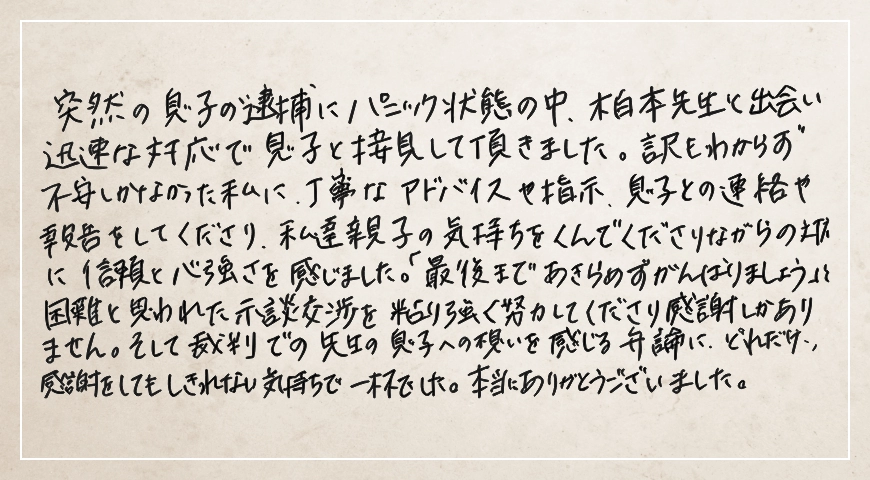 突然の息子の逮捕にパニック状態の中、柏本先生と出会い
迅速な対応で息子と接見して頂きました。訳もわからず
不安しかなかった私に、丁寧なアドバイスや指示、息子との連絡や
報告をしてくださり、私達親子の気持ちをくんでくださりながらの
に信頼と心強さを感じました。「最後まであきらめずがんばりましょう」と
困難と思われた示談交渉を粘り強く努力してくださり感謝しかあり
ません。そして裁判での先生の息子への想いを感じる弁論に、どれだけ、
感謝をしてもしきれない気持ちで一杯でした。本当にありがとうございました。